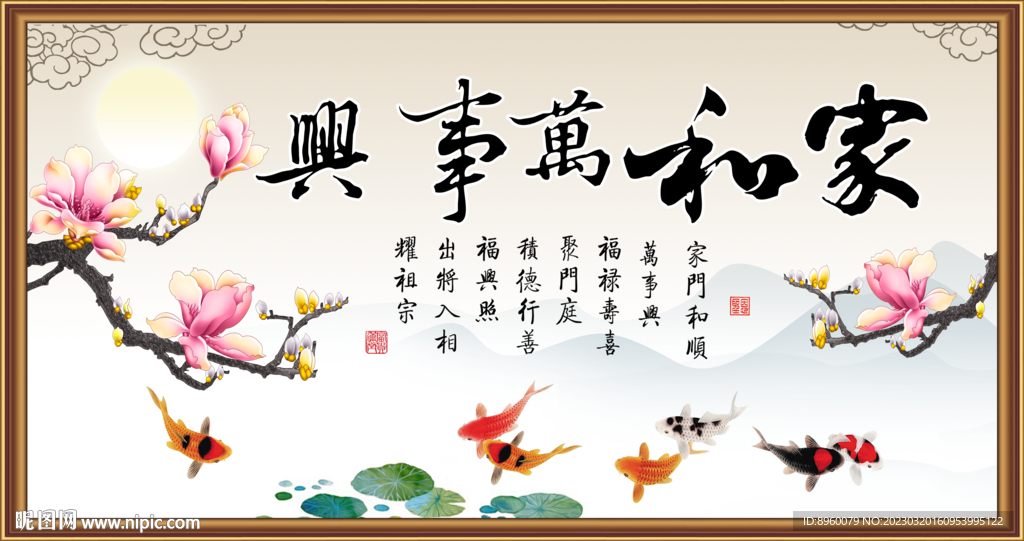 家和萬事興
家門和順
萬事興
福禄壽喜
聚門庭
積德行善
福興照
出將入相
耀祖宗
昵图网 www.nipic.com
ID:8960079 NO:20230320160953995122